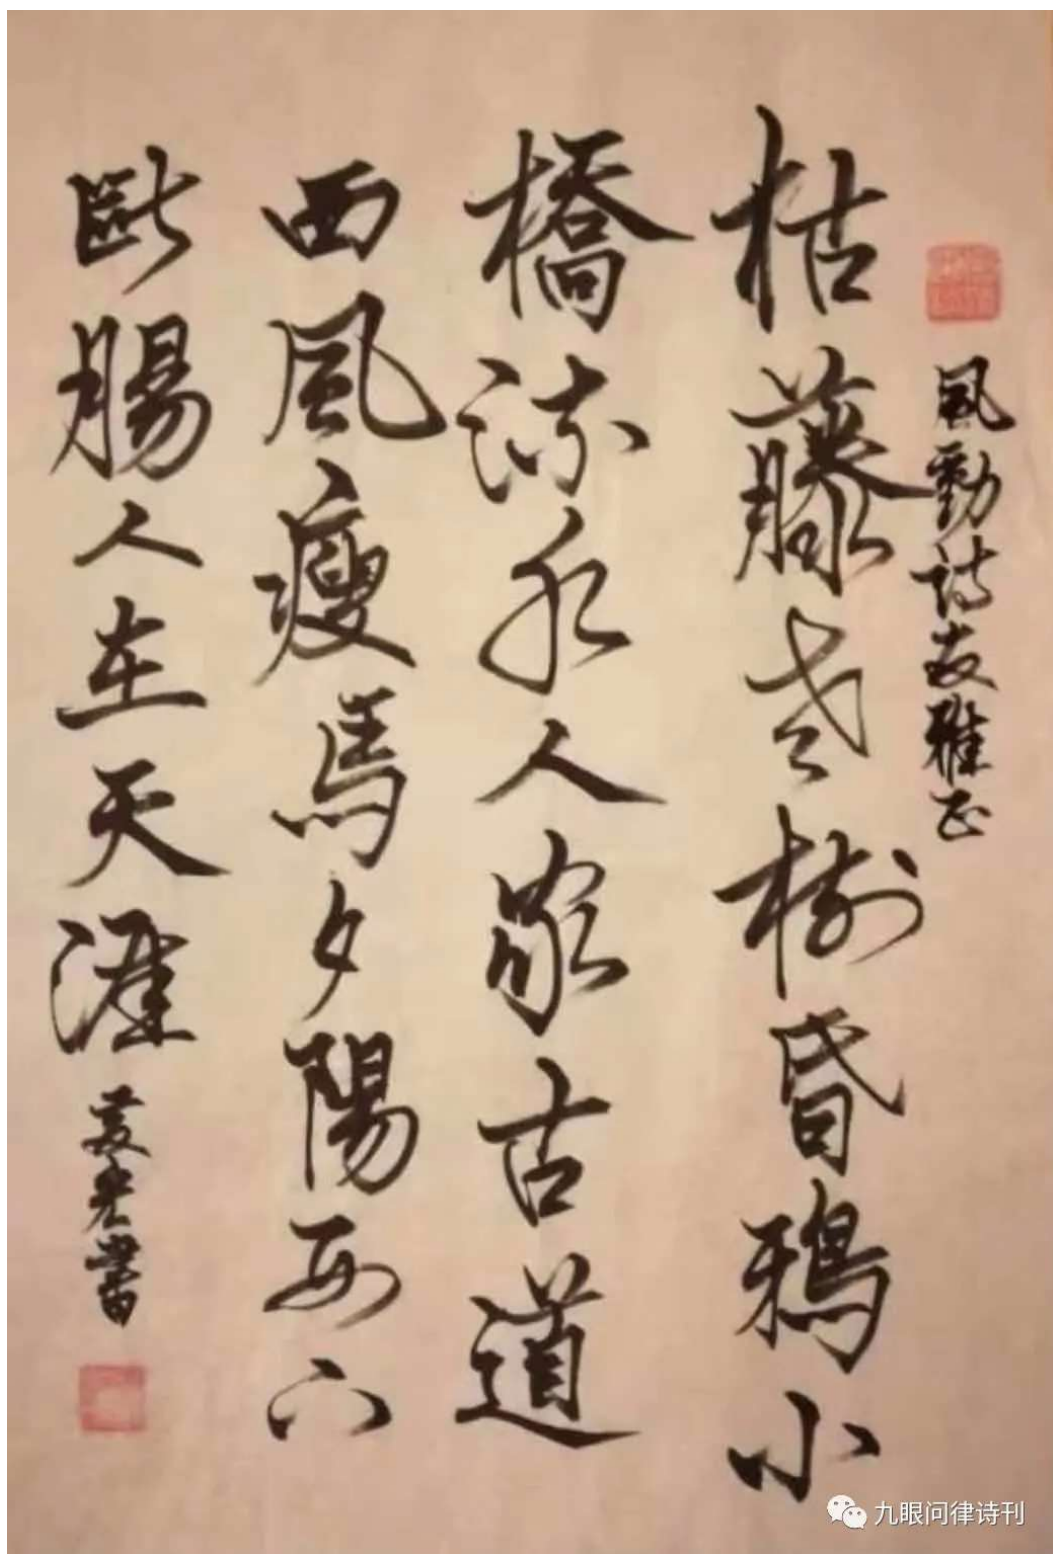 風勁詩友雅正
枯藤老樹昏鴉小
橋流水人家古道
西風瘦馬夕陽西下
斷腸人在天涯
書
九眼问律诗刊